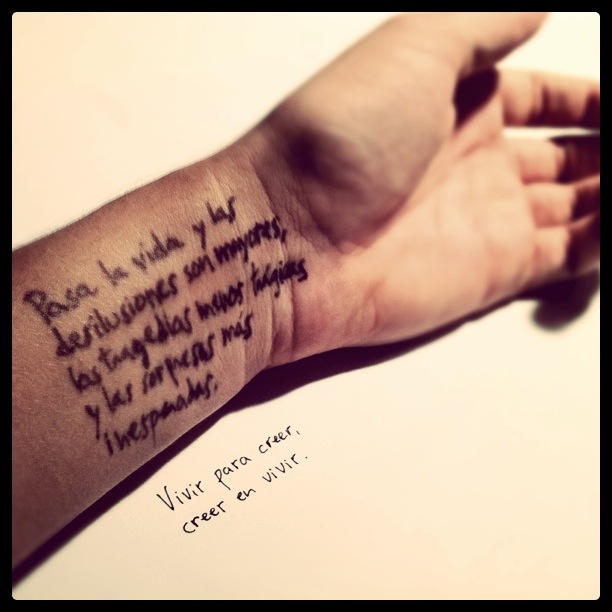 Pasa la vida y las
desilusiones son mayores,
las tragedias menos trágicas
y las sorpresas más
inesperadas.
Vivir para creer,
creer en vivir.